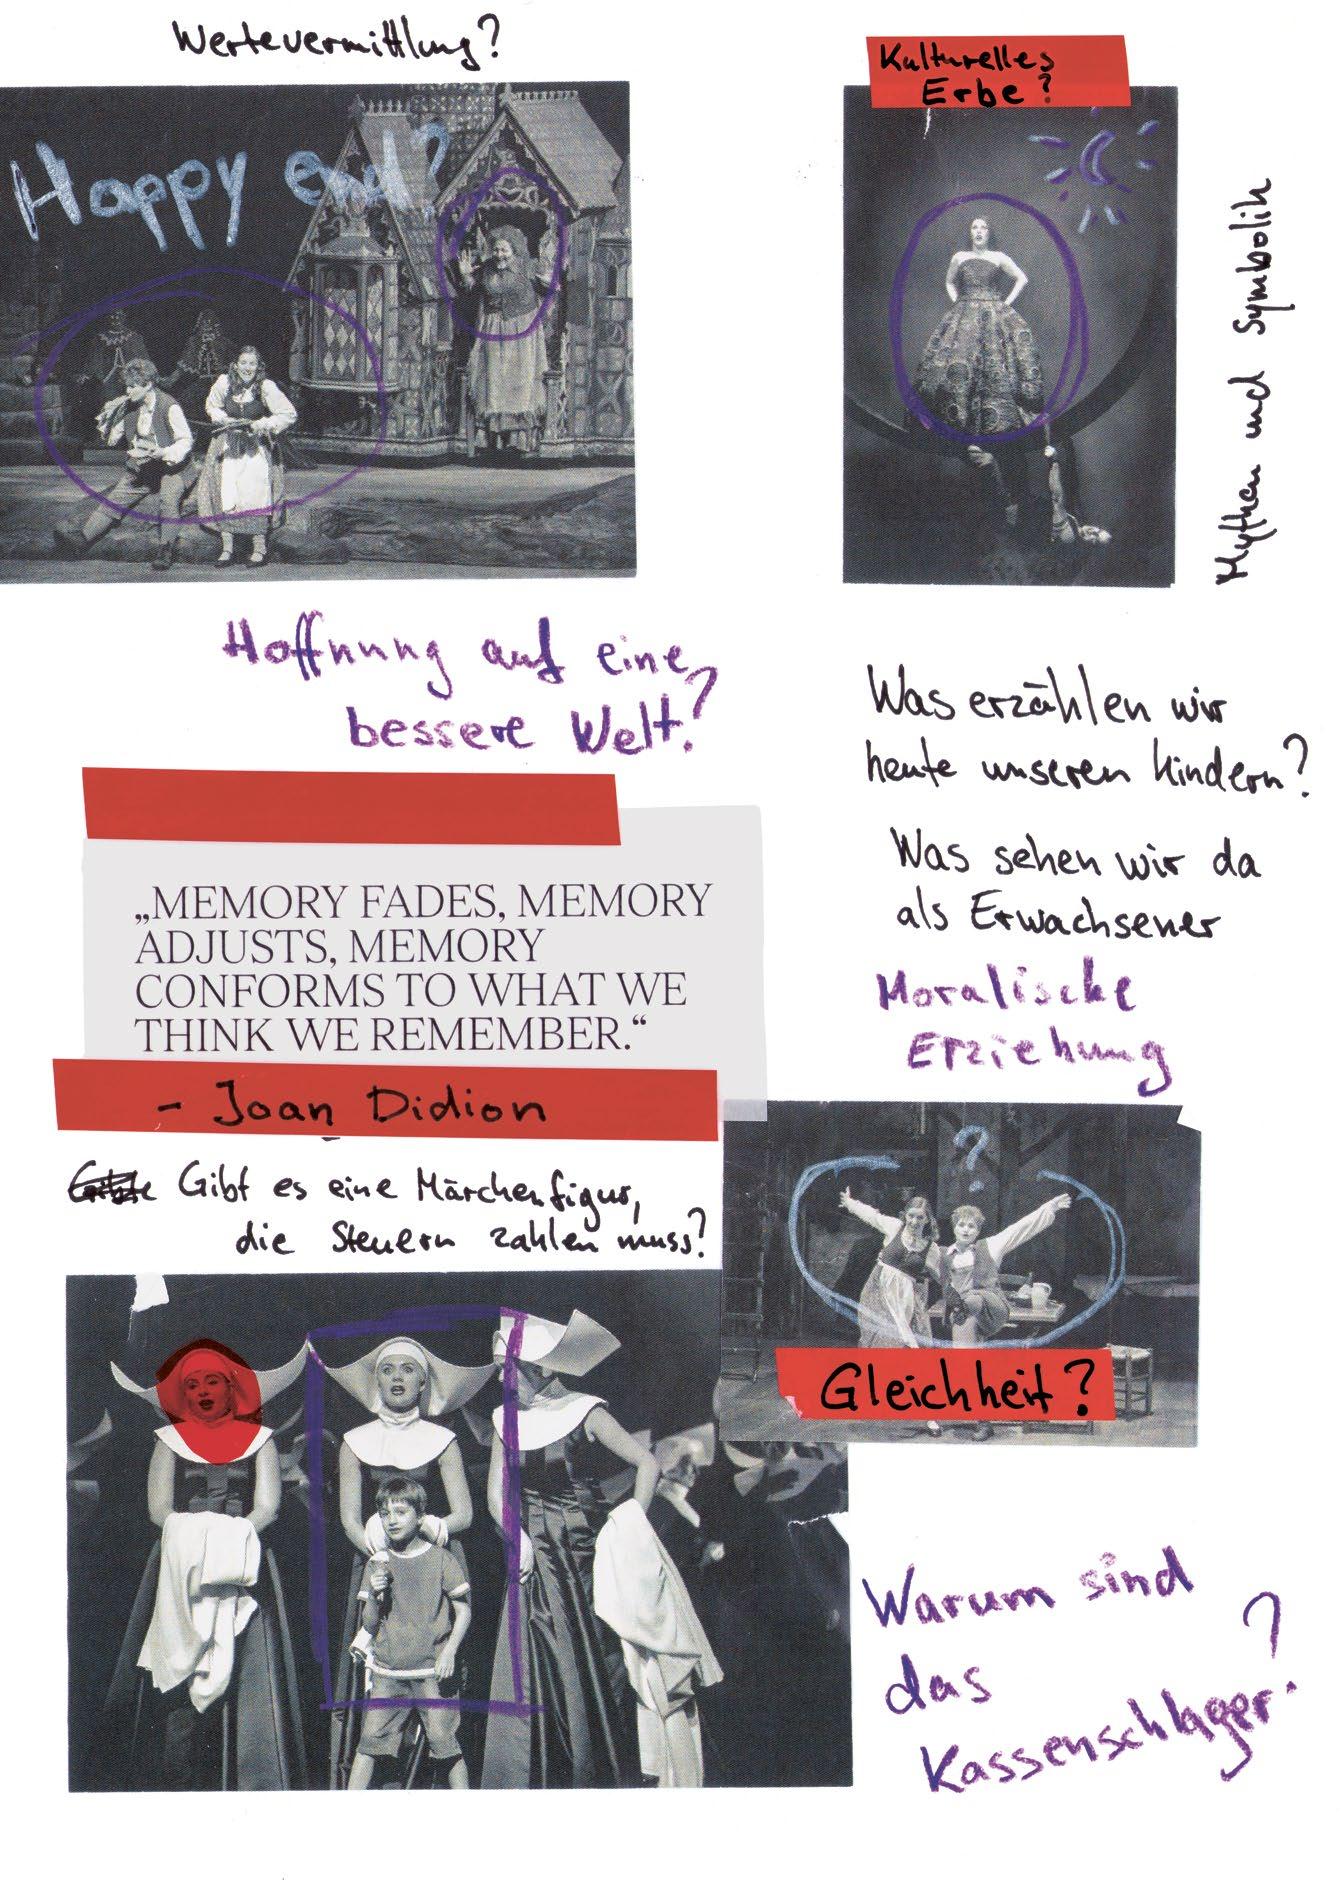 Wertevermittlung?
Happy end?
Kulturelles
Erbe?
Mythen und Symbolik
Hoffnung auf eine
bessere Welt?
Was erzählen wir
heute unseren Kindern?
Was sehen wir da
als Erwachsener
Moralische
Erziehung
„MEMORY FADES, MEMORY
ADJUSTS, MEMORY
CONFORMS TO WHAT WE
THINK WE REMEMBER.“
- Joan Didion
Gibt es eine Märchenfigur,
die Steuern zahlen muss?
?
Gleichheit?
Warum sind
das
Kassenschlager?